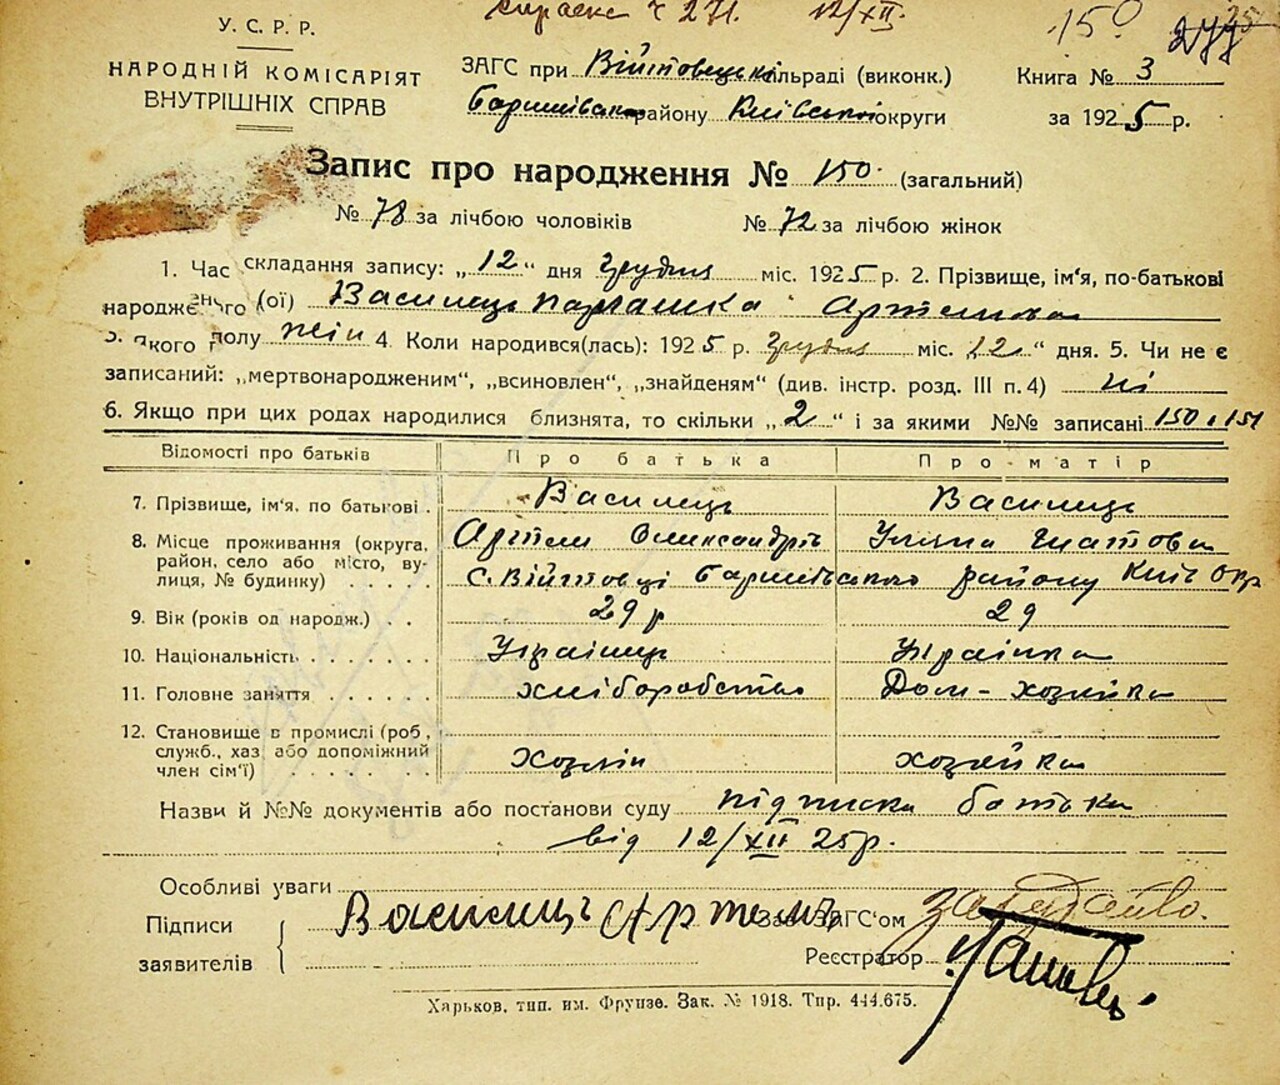 справка ч 271. 12/XII.
150 277
У. С. Р. Р.
НАРОДНІЙ КОМІСАРІЯТ
ВНУТРІШНІХ СПРАВ
ЗАГС при Війтовецькі сільраді (виконк.)
Баришівськ району Київської округи
Книга № 3
за 1925 р.
Запис про народження № 150. (загальний)
№ 78 за лічбою чоловіків № 72 за лічбою жінок
1. Час складання запису: „12“ дня грудня міс. 1925 р. 2. Прізвище, ім‘я, по-батькові
народженого (ої) Василець Парашка Артемова
3. Якого полу жін 4. Коли народився(лась): 1925 р. грудня міс. 12“ дня. 5. Чи не є
записаний: „мертвонародженим“, „всиновлен“, „знайденям“ (див. інстр. розд. III п. 4) ні
6. Якщо при цих родах народилися близнята, то скільки „2“ і за якими №№ записані 150 і 151
Відомості про батьків Про батька Про матір
7. Прізвище, ім‘я, по батькові . Василець Василець
8. Місце проживання (округа, Артем Олександрів Уляна
район, село або місто, вулиця, № будинку) . . . . с. Війтовці Баришівського району Київ окр
9. Вік (років од народж.) . . 29 р 29
10. Національність . . . . . . . Українець Українка
11. Головне заняття . . . . . . хліборобство Дом-хозяйка
12. Становище в промислі (роб.,
служб., хаз. або допоміжний
член сім‘ї) . . . . . . . Хозяін хозяйка
Назви й №№ документів або постанови суду підписка батька
від 12/XII 25р.
Особливі уваги
Підписи Василець Артем Зав. ЗАГС‘ом
заявителів Реєстратор
Харьков, тип. им. Фрунзе. Зак. № 1918. Тир. 444.675.